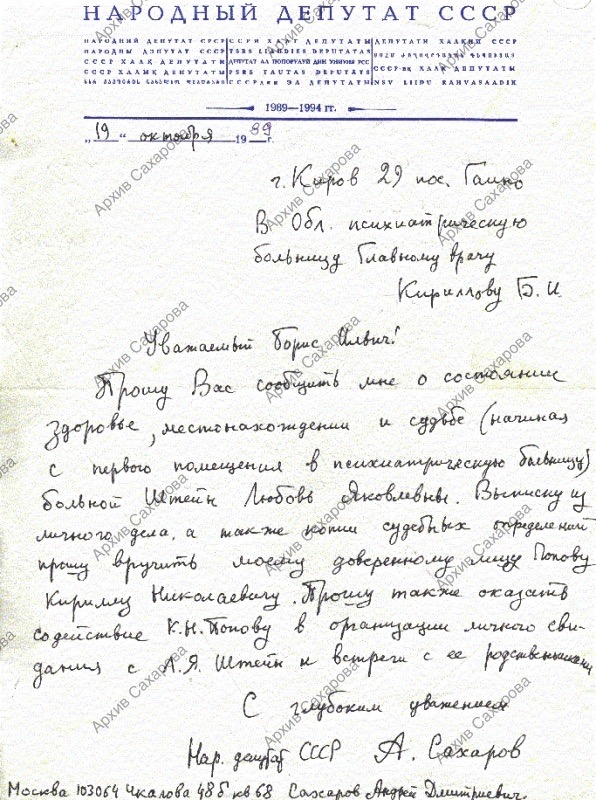 НАРОДНЫЙ ДЕПУТАТ СССР
НАРОДНИЙ ДЕПУТАТ СРСР
НАРОДНЫ ДЭПУТАТ СССР
СССР ХАЛҚ ДЕПУТАТЫ
СССР ХАЛЫҚ ДЕПУТАТЫ
TSRS LIAUDIES DEPUTATAS
ДЕПУТАТ АЛ ПОПОРУЛУЙ ДИН УНИУНЯ РСС
PSRS TAUTAS DEPUTĀTS
СССР-НИН ЭЛ ДЕПУТАТЫ
ДЕПУТАТИ ХАЛКИИ СССР
СССР-иң ХАЛК ДЕПУТАТЫ
NSV LIIDU RAHVASAADIK
1989—1994 гг.
„19“ октября 1989 г.
г. Киров 29 пос. Гание
В Обл. психиатрическую
больницу Главному врачу
Кириллову Б. И.
Уважаемый Борис Ильич!
Прошу Вас сообщить мне о состоянии
здоровье, местонахождении и судьбе (начиная
с первого помещения в психиатрическую больницу)
больной Штейн Любовь Яковлевны. Выписку из
личного дела, а также копии судебных определений
прошу вручить моему доверенному лицу Попову
Кириллу Николаевичу. Прошу также оказать
содействие К.Н.Попову в организации личного сви-
дания с Л.Я. Штейн и встречи с ее родственниками
С глубоким уважением
Нар. депутат СССР А. Сахаров
Москва 103064 Чкалова 48б кв 68 Сахаров Андрей Дмитриевич.
Архив Сахарова